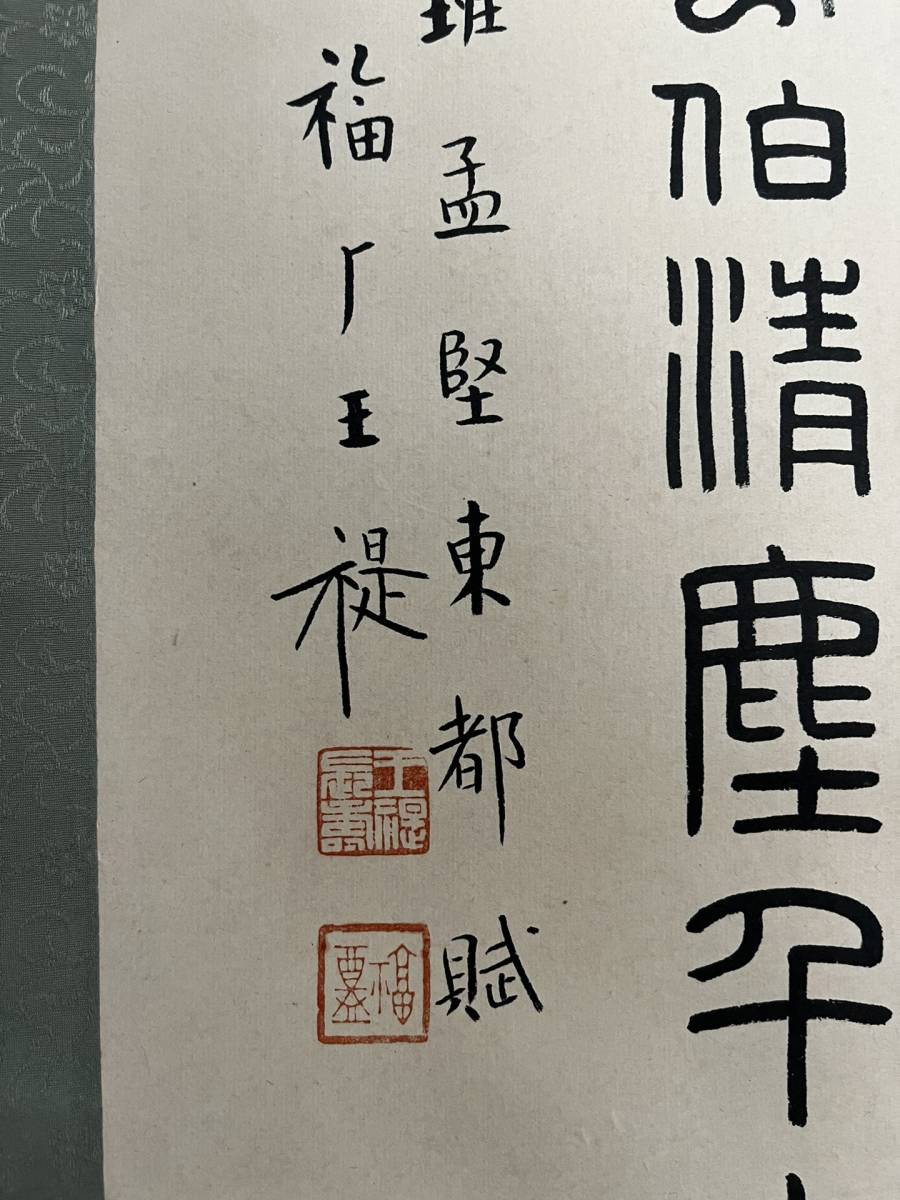 伯清塵千
班孟堅東都賦
福厂王禔
王禔
福盦